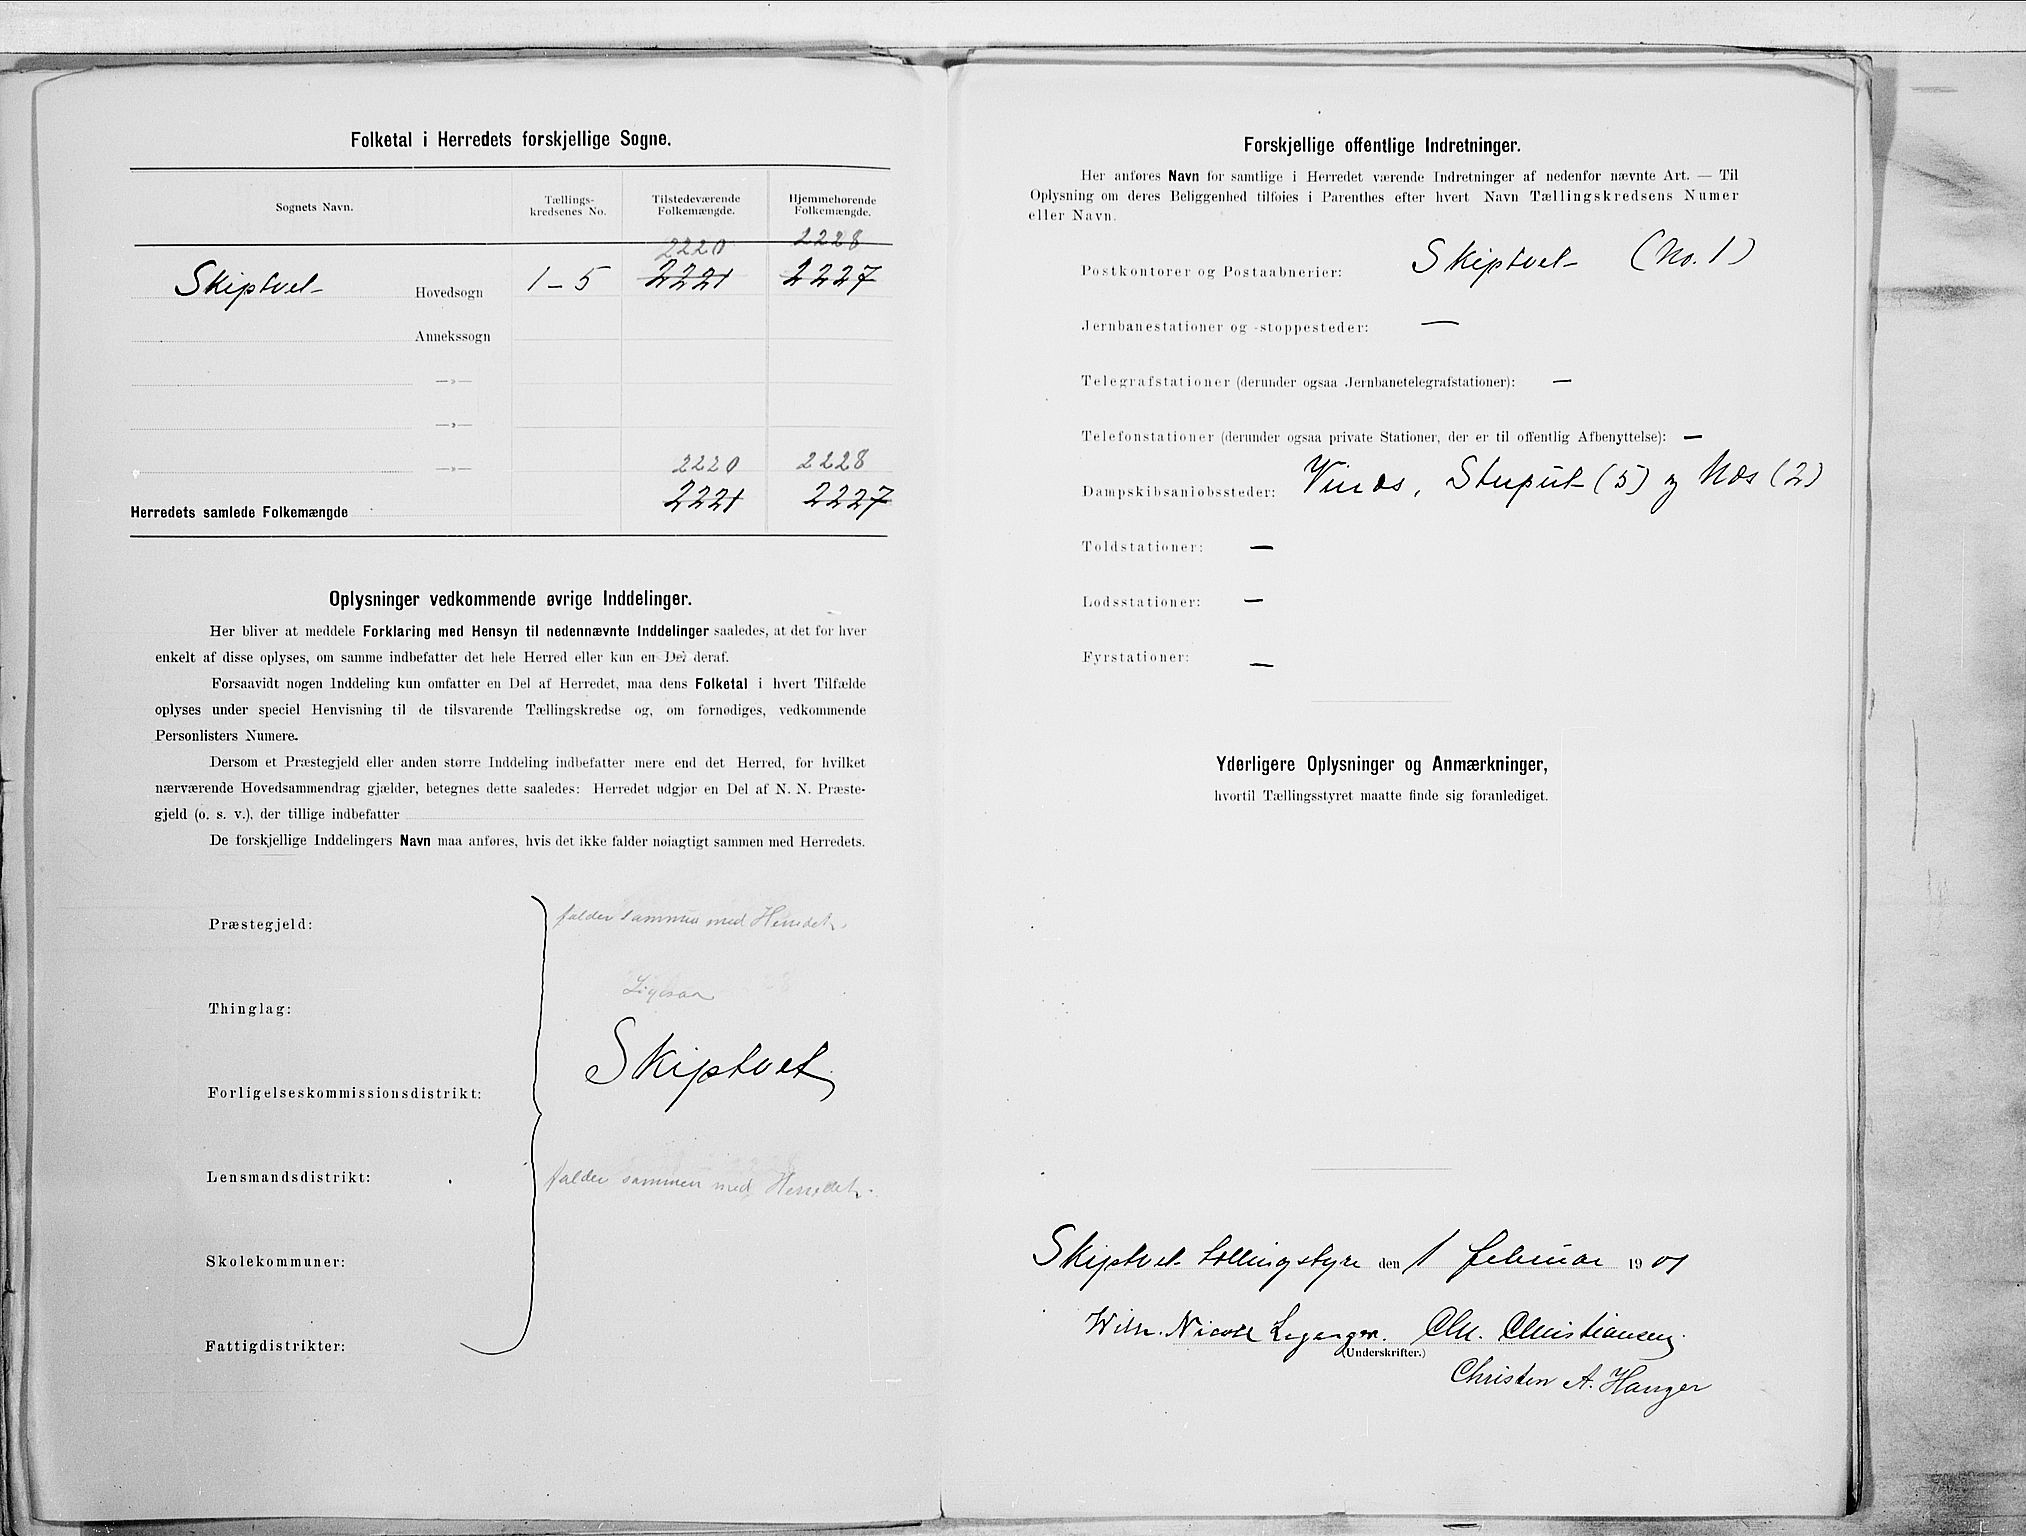 Folketal i Herredets forskjellige Sogne.
Sognets Navn.
Tællings-
kredsenes No.
Tilstedeværende
Folkemængde.
Hjemmehørende
Folkemængde.
2220 2228
Skiptvet Hovedsogn 1-5 2221 2227
Annekssogn
—»—
—»—
2220 2228
—»—
2221 2227
Herredets samlede Folkemængde
Oplysninger vedkommende øvrige Inddelinger.
Her bliver at meddele Forklaring med Hensyn til nedennævnte Inddelinger saaledes, at det for hver
enkelt af disse oplyses, om samme indbefatter det hele Herred eller kun en Del deraf.
Forsaavidt nogen Inddeling kun omfatter en Del af Herredet, maa dens Folketal i hvert Tilfælde
oplyses under speciel Henvisning til de tilsvarende Tællingskredse og, om fornødiges, vedkommende
Personlisters Numere.
Dersom et Præstegjeld eller anden større Inddeling indbefatter mere end det Herred, for hvilket
nærværende Hovedsammendrag gjælder, betegnes dette saaledes: Herredet udgjør en Del af N. N. Præste-
gjeld (o. s. v.), der tillige indbefatter
De forskjellige Inddelingers Navn maa anføres, hvis det ikke falder nøiagtigt sammen med Herredets.
Præstegjeld: falder sammen med Herredet.
Ligesaa
Thinglag:
Skiptvet
Forligelseskommissionsdistrikt:
Lensmandsdistrikt: falder sammen med Herredet.
Skolekommuner:
Fattigdistrikter:
Forskjellige offentlige Indretninger.
Her anføres Navn for samtlige i Herredet værende Indretninger af nedenfor nævnte Art. — Til
Oplysning om deres Beliggenhed tilføies i Parenthes efter hvert Navn Tællingskredsens Numer
eller Navn.
Postkontorer og Postaabnerier: Skiptvet (No. 1)
Jernbanestationer og -stoppesteder: —
Telegrafstationer (derunder ogsaa Jernbanetelegrafstationer): —
Telefonstationer (derunder ogsaa private Stationer, der er til offentlig Afbenyttelse): —
Dampskibsanløbssteder: (5) og Næs (2)
Toldstationer: —
Lodsstationer: —
Fyrstationer: —
Yderligere Oplysninger og Anmærkninger,
hvortil Tællingsstyret maatte finde sig foranlediget.
Skiptvet tællingstyre den 1 februar 1901
Wilh. Nicoll Leganger. Chr. Christiansen.
(Underskrifter.)
Christen A. Hauger